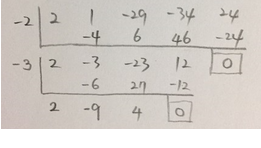 -2 2 1 -29 -34 24
-4 6 46 -24
-3 2 -3 -23 12 0
-6 27 -12
2 -9 4 0